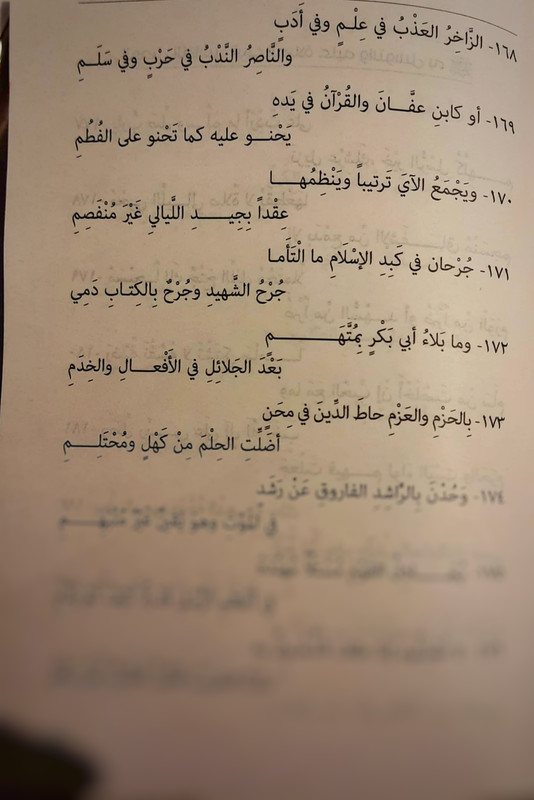 ١٦٨- الزَّاخِرُ العَذْبُ في عِلْـمٍ وفي أَدَبٍ
والنَّاصِرُ النَّدْبُ في حَرْبٍ وفي سَلَـمِ
١٦٩- أو كابنِ عفَّـــانَ والقُرْآنُ في يَدهِ
يَحْنـــو عليه كما تَحْنو على الفُطُمِ
١٧٠- ويَجْمَعُ الآيَ تَرتيباً ويَنْظِمُهـــا
عِقْداً بِجِيـــدِ اللَّيالي غَيْرَ مُنْفَصِمِ
١٧١- جُرْحان في كَبِدِ الإسْلَامِ ما الْتَأَمـا
جُرْحُ الشَّهيدِ وجُرْحٌ بِالكِتـابِ دَمِي
١٧٢- وما بَلاءُ أبي بَكْرٍ بِمُتَّهَــــــــمٍ
بَعْدَ الجَلائِلِ في الأَفْعـــالِ والخِدَمِ
١٧٣- بِالحَزْمِ والعَزْمِ حاطَ الدِّينَ في مِحَنٍ
أضَلَّتِ الحِلْمَ مِنْ كَهْلٍ ومُحْتَلِـــمِ
١٧٤- وَحُدْنَ بِالرَّاشِدِ الفاروقِ عَنْ رَشَدٍ
في المَوْتِ وهو يَقينٌ غَيْرُ مُنْبَهِـــمِ